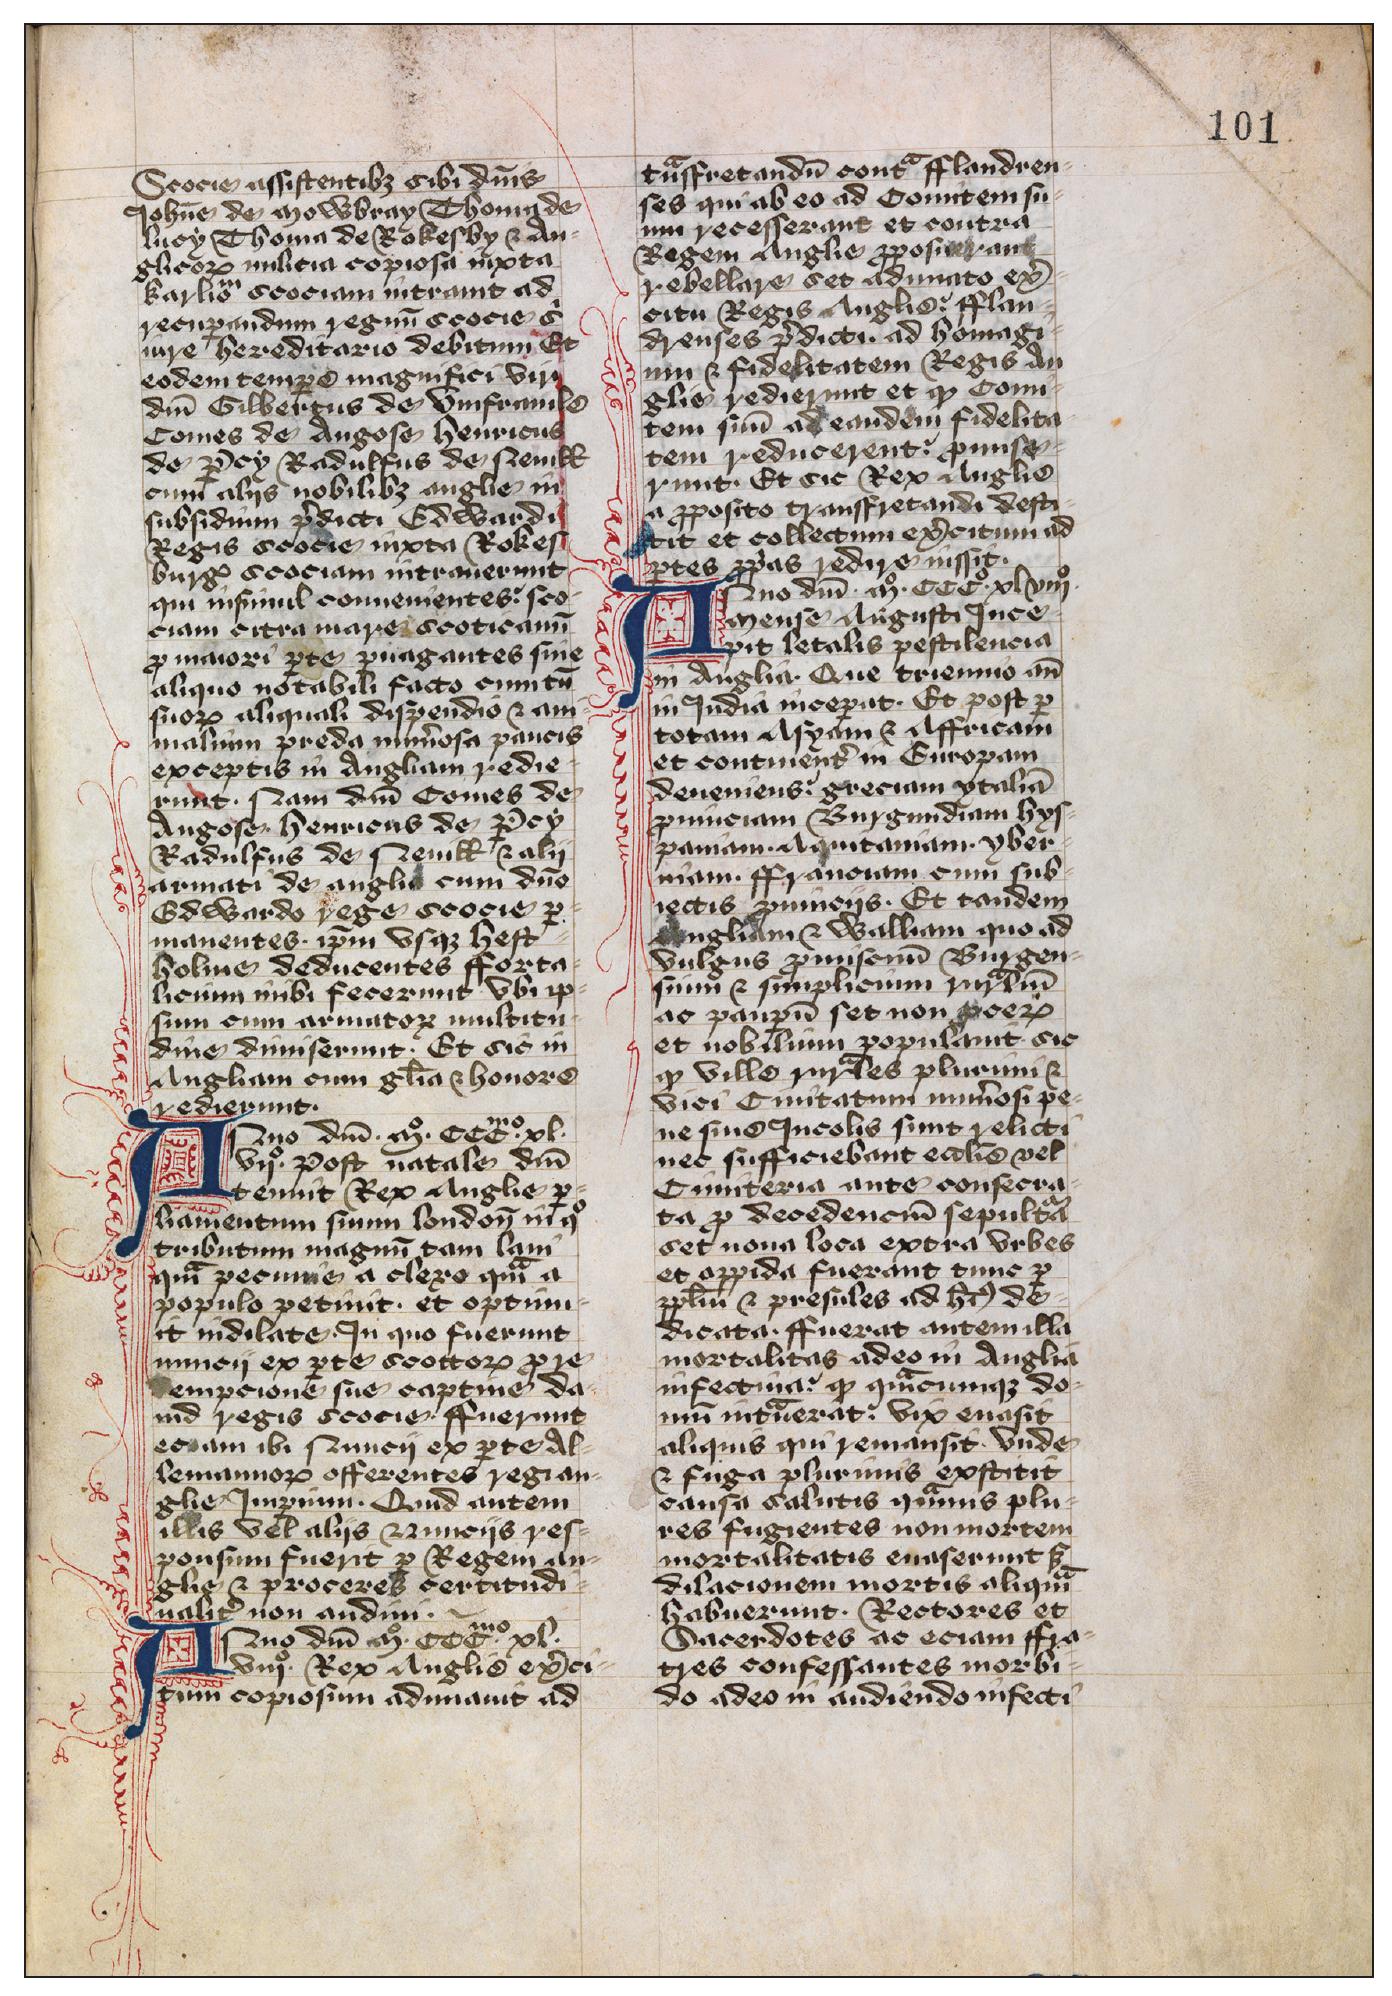 101
Scocie assistentibꝫ sibi dn̄is
Joh̄ne de Mowbray Thoma de
lucy Thoma de Rokesby ⁊ An-
glicoꝝ militia copiosa iuxta
karliom̄ scociam intrauit ad
recuꝑandum regnū scocie s̄
iure hereditario debitum Et
eodem tempo̱re magnifici viri
dn̄i Gilbertus de Vmframile
Comes de Angose henricus
de ꝑcy Radulfus de Neuiłł
cum alijs nobilibꝫ anglie in
subsidium p̄dicti Edwardi
Regis scocie iuxta Rokes
burgℯ scociam intrauerunt
qui insimul conuenientes sco-
ciam citra mare scoticanū
ꝓ maiori ꝑte ꝑuagantes sine
aliquo notabili facto cum tn̄
suoꝝ aliquali dispendio ⁊ ani-
malium preda num̄osa paucis
exceptis in Angliam redie-
runt. Nam dn̄i Comes de
Angose henricus de ꝑcy
Radulfus de Neuiłł ⁊ alij
armati de anglia cum dn̄o
Edwardo rege scocie ꝑ-
manentes. ip̄m vsqꝫ hest-
holme deducentes fforta-
licium inibi fecerunt vbi ip-
sum cum armatoꝝ multitu-
dine dimiserunt. Et sic in
Angliam cum gl̄ia ⁊ honore
redierunt.
Anno dn̄i. Mᵒ. CCCᵐᵒ. xl.
vijᵒ. Post natale dn̄i
tenuit Rex Anglie ꝑ-
liamentum suum london̄ in qᵒ
tributum magnū tam lani
qm̄ pecunie a clero qm̄ a
populo petiuit. et optinu-
it indilate. In quo fuerunt
nuncij ex ꝑte scottoꝝ pre
empcione sue captiue da-
uid regis scocie. ffuerunt
eciam ibi Nuncij ex ꝑte Al-
lemannoꝝ offerentes regi an-
glie Imꝑium. Quid autem
illis vel alijs Nuncijs res-
ponsum fuerit ꝑ Regem an-
glie ⁊ proceres certitudi-
nalit̄ non audiui.
Anno dn̄i Mᵒ. CCCᵐᵒ. xl.
viijᵒ. Rex Anglie ex̄ci-
tum copiosum adunauit ad
tn̄sfretandū contᵃ fflandren-
ses qui ab eo ad Comitem su-
um recesserant et contra
Regem Anglie ꝓposuerant
rebellare set adunato ex̄-
citu Regis Anglie fflan-
drenses p̄dicti. ad homagi-
um ⁊ fidelitatem Regis An
glie redierunt et qꝫ Comi-
tem suū ad eandem fidelita-
tem reducerent ꝓmise-
runt. Et sic Rex Anglie
a ꝓposito transfretandi desti-
tit et collectum ex̄citum ad
ꝑtes ꝓprias redire iussit.
Anno dn̄i. Mᵒ. CCCᵒ. xlviijᵒ.
Mense Augusti Ince-
pit letalis pestilencia
in Anglia. Que triennio an̄
in India inceꝑat. Et post ꝑ
totam Asyam ⁊ Affricam
et continent̄ in Europam
deueniens greciam ytaliā
ꝓuinciam Burgundiam hys-
paniam. Aquitaniam. yber-
niam. ffranciam cum sub-
iectis ꝓuincijs. Et tandem
Angliam ⁊ Walliam quo ad
vulgus ꝓmiscuū Burgen-
sium ⁊ simplicium ruraliū
ac pauꝑū set non ꝓceꝝ
et nobilium populauit sic
qꝫ ville rurales plurimi ⁊
vici Ciuitatum num̄osi pe-
ne sine Incolis sunt relicti
nec sufficiebant ecclīe vel
Cimiteria ante consecra-
ta ꝓ decedenciū sepultᵃ
set noua loca extra vrbes
et oppida fuerant tunc ꝑ
ppl̄m ⁊ presules ad hᵒ̄ de-
dicata. ffuerat autem illa
mortalitas adeo in Anglia
infectiua qꝫ qn̄cumqꝫ do-
mū intᵃuerat vix euasit
aliquis qui remansit. vnde
⁊ fuga plurimis exstitit
causa salutis qᵃmuis plu-
res fugientes non mortem
mortalitatis euaserunt s̄
dilacionem mortis aliqᵃm
habuerunt. Rectores et
Sacerdotes ac eciam ffra-
tres confessantes morbi-
do adeo in audiendo infecti